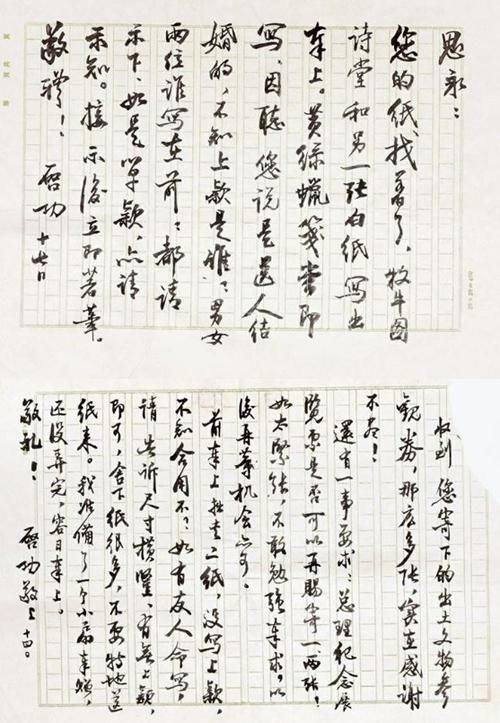 您的纸、找着了，牧牛图
诗堂和另一张白纸写出
奉上。黄绿蜡笺当即
写、因聽您说是送人结
婚的，不知上款是谁？男女
两位谁写在前？都请
示下、如是单款，亦请
示知。接示後立即著笔。
敬禮！ 啓功 十七日
收到您寄下的出土文物参
觀券，那麼多张，实在感谢
不尽！
還有一事要求：总理纪念展
览票是否可以再赐寄一两张？
如太紧张，不敢勉强奉求，以
後再等机会亦可。
前奉上拙画二纸，没写上款，
不知合用不？如有友人命写，
请告诉尺寸横竖、有无上款，
即可，舍下纸很多，不要特地送
纸来。我准備了一个小扇奉赠，
还没弄完，容日奉上。
敬礼！ 啓功敬上 十四日